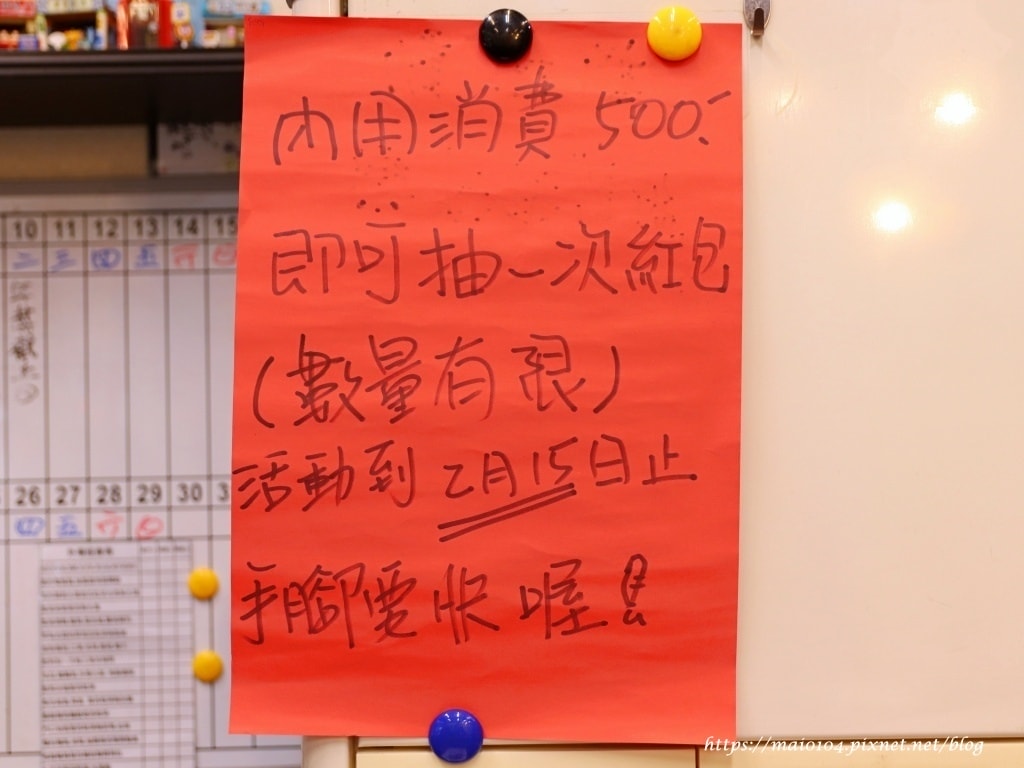 內用消費 500.-
即可抽一次紅包
(數量有限)
活動到 2月15日止
手腳要快喔!
10 11 12 13 14 15
二 三 四 五 六 日
26 27 28 29 30 3
四 五 六 日
https://maio104.pixnet.net/blog